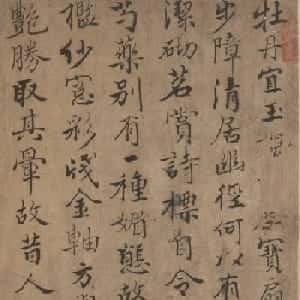 牡丹宜玉寶扇
步障清居幽徑何以有
潔砌茗賞詩標自令
芍藥别有一種媚態故
檻紗窓彩牋金軸方
艷勝取其暈故昔人